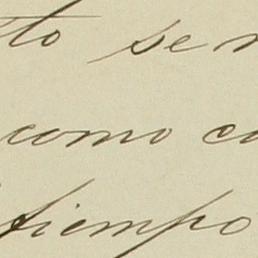 to se
como co
tiempo